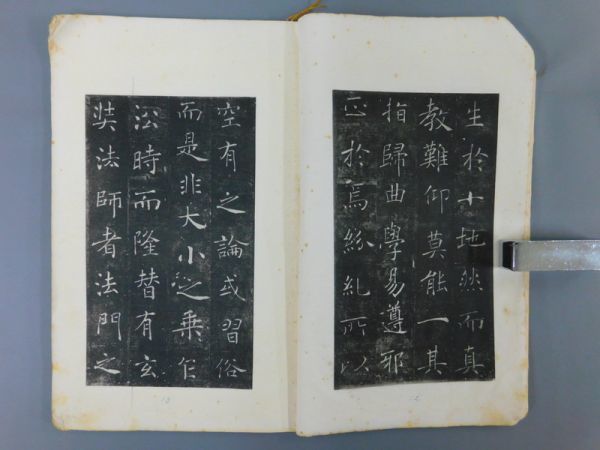 生於十地然而真
教難仰莫能一其
指歸曲學易遵邪
正於焉紛糺所以
空有之論或習俗
而是非大小之乘乍
㳂時而隆替有玄
奘法師者法門之